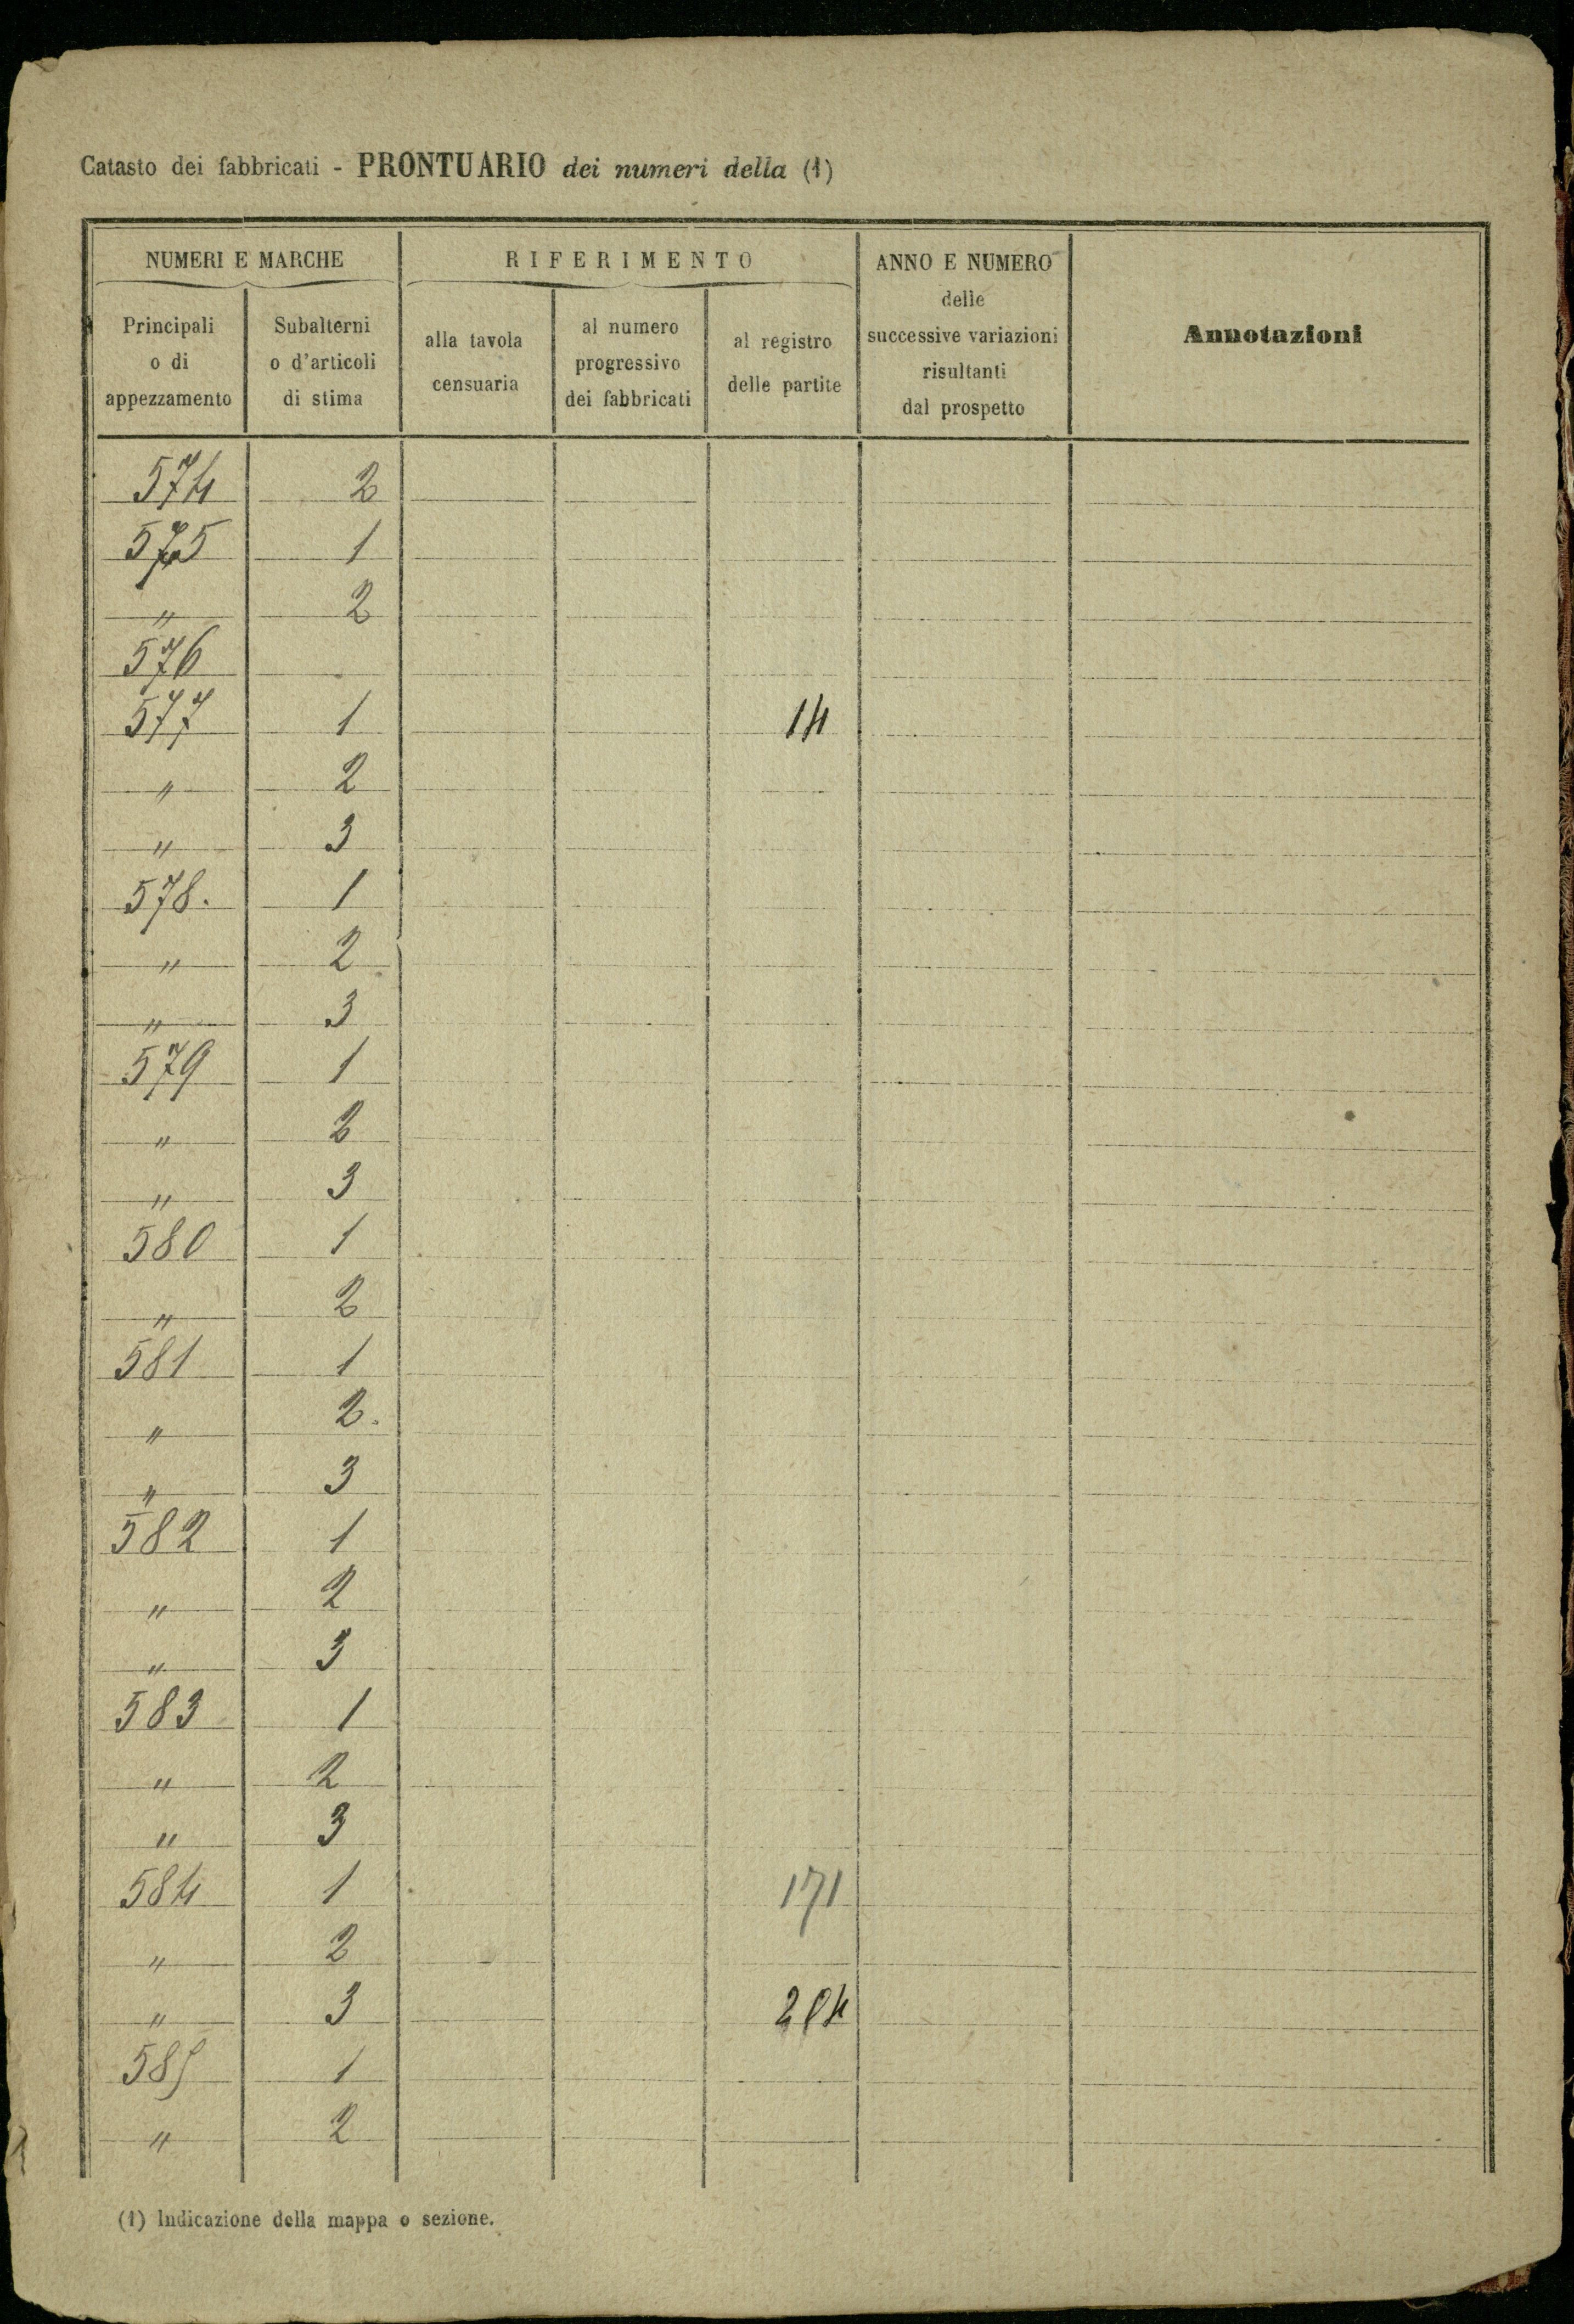 Catasto dei fabbricati - PRONTUARIO dei numeri della (1)
NUMERI E MARCHE
RIFERIMENTO
ANNO E NUMERO
delle
successive variazioni
risultanti
dal prospetto
Annotazioni
Principali
o di
appezzamento
Subalterni
o d'articoli
di stima
alla tavola
censuaria
al numero
progressivo
dei fabbricati
al registro
delle partite
574 2
575 1
" 2
576
577 1 14
" 2
" 3
578. 1
" 2
" 3
579 1
" 2
" 3
580 1
" 2
581 1
" 2.
" 3
582 1
" 2
" 3
583 1
" 2
" 3
584 1 171
" 2
" 3 204
585 1
" 2
(1) Indicazione della mappa o sezione.